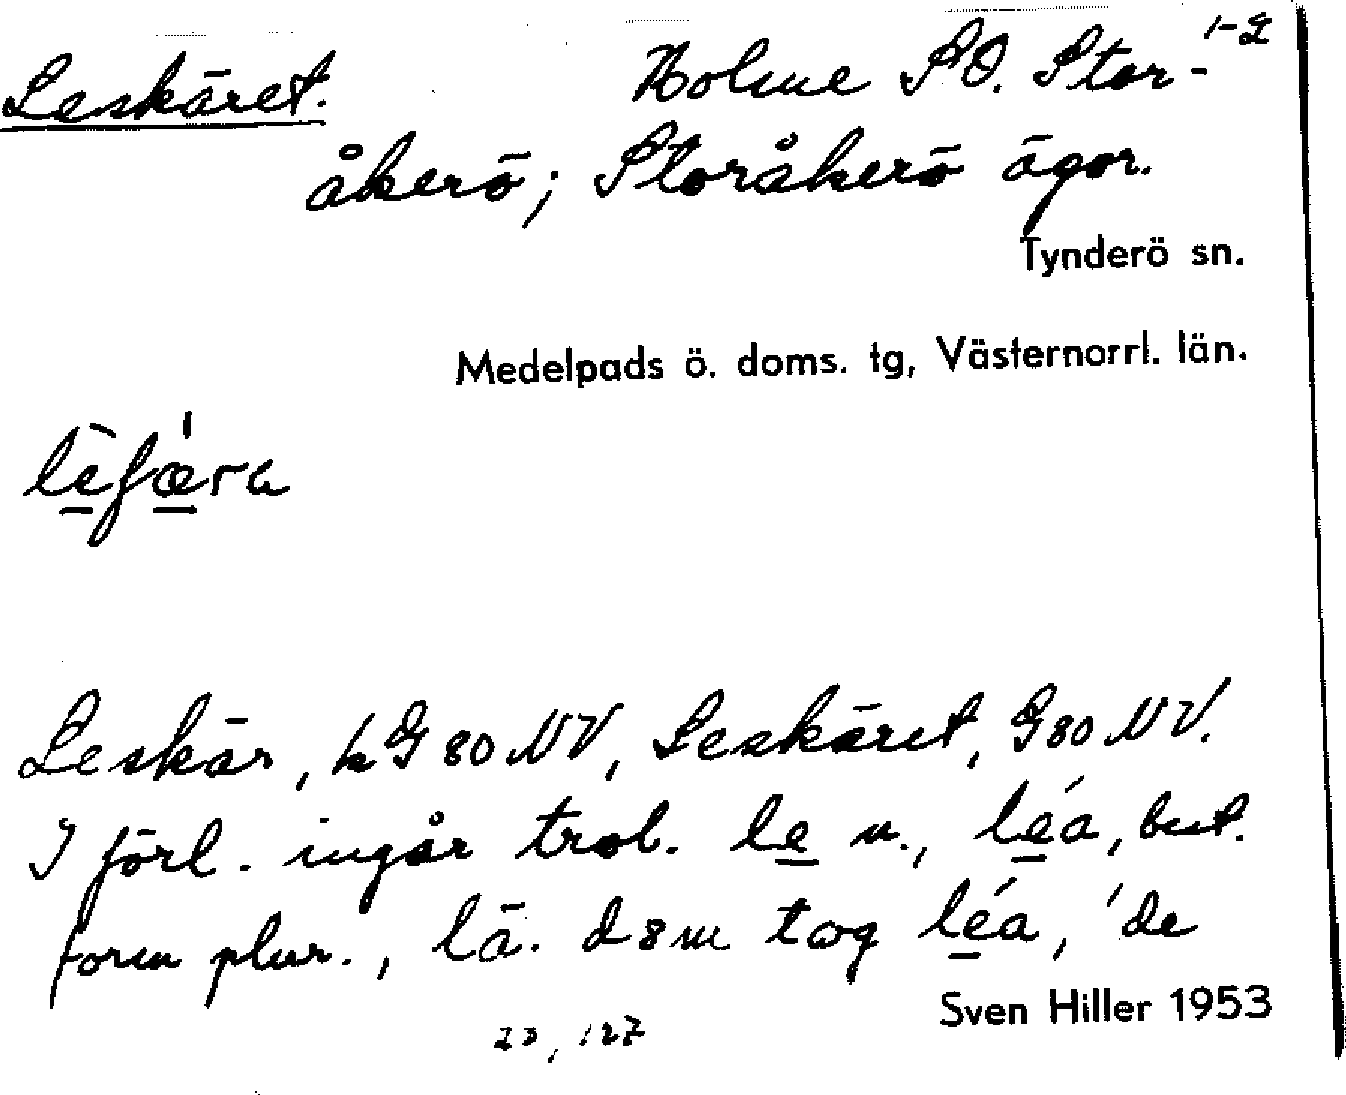 1-2
Leskäret. Holme SO. Stor-
åkerö; Storåkerö ägor.
Tynderö sn.
Medelpads ö. doms. tg, Västernorrl. län.
Leskär, hG 80 NV, Leskäret, G 80 NV.
I förl. ingår trol. le n., léa, best.
form plur., lä. dem tog léa, 'de
Sven Hiller 1953